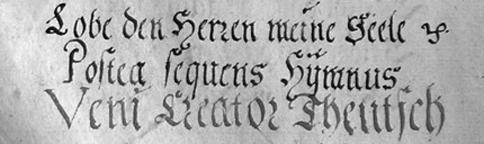 Lobe den Herren meine Seele ꝛc.
Postea sequens Hÿmnus
Veni Creator Theutsch